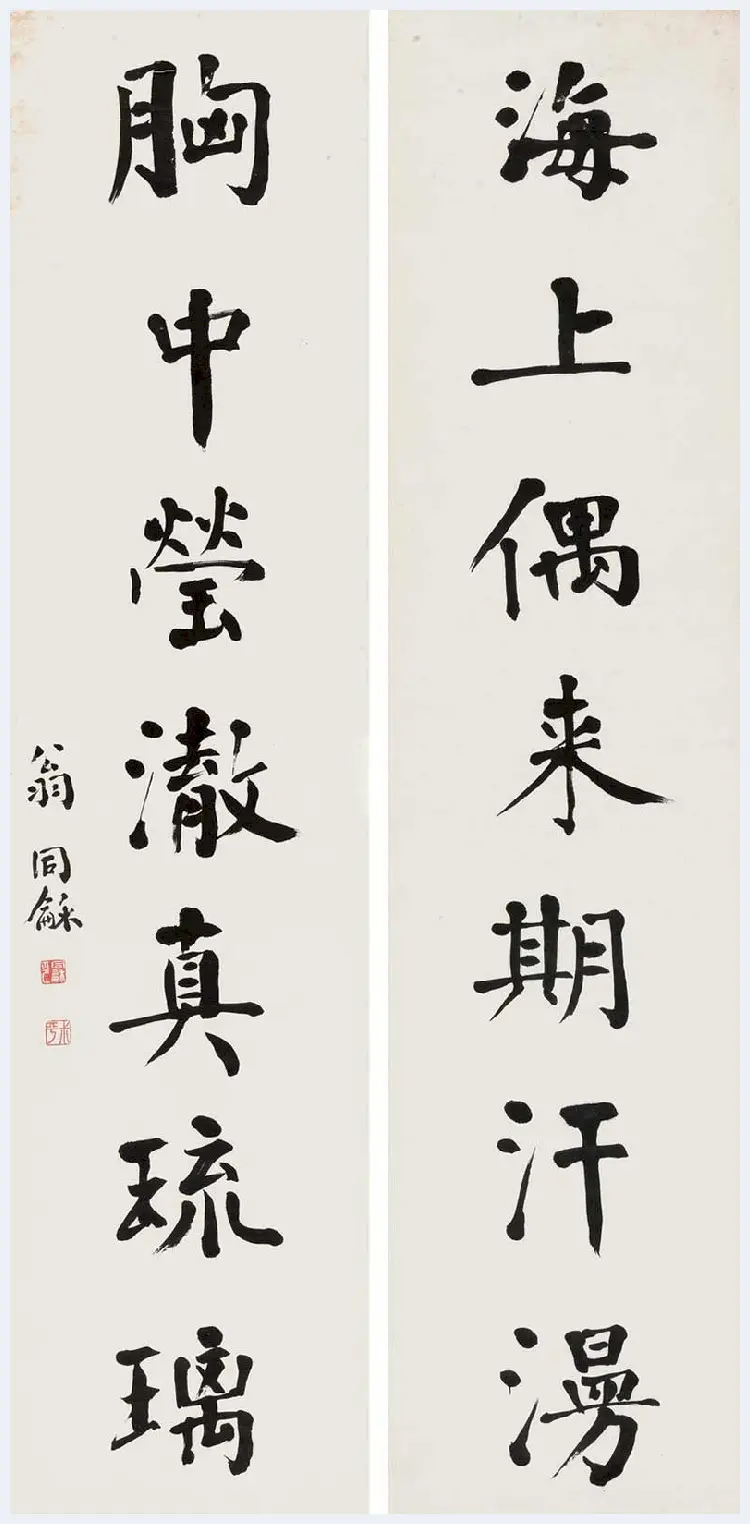 海上偶来期汗漫
胸中瑩澈真琉璃
翁同龢